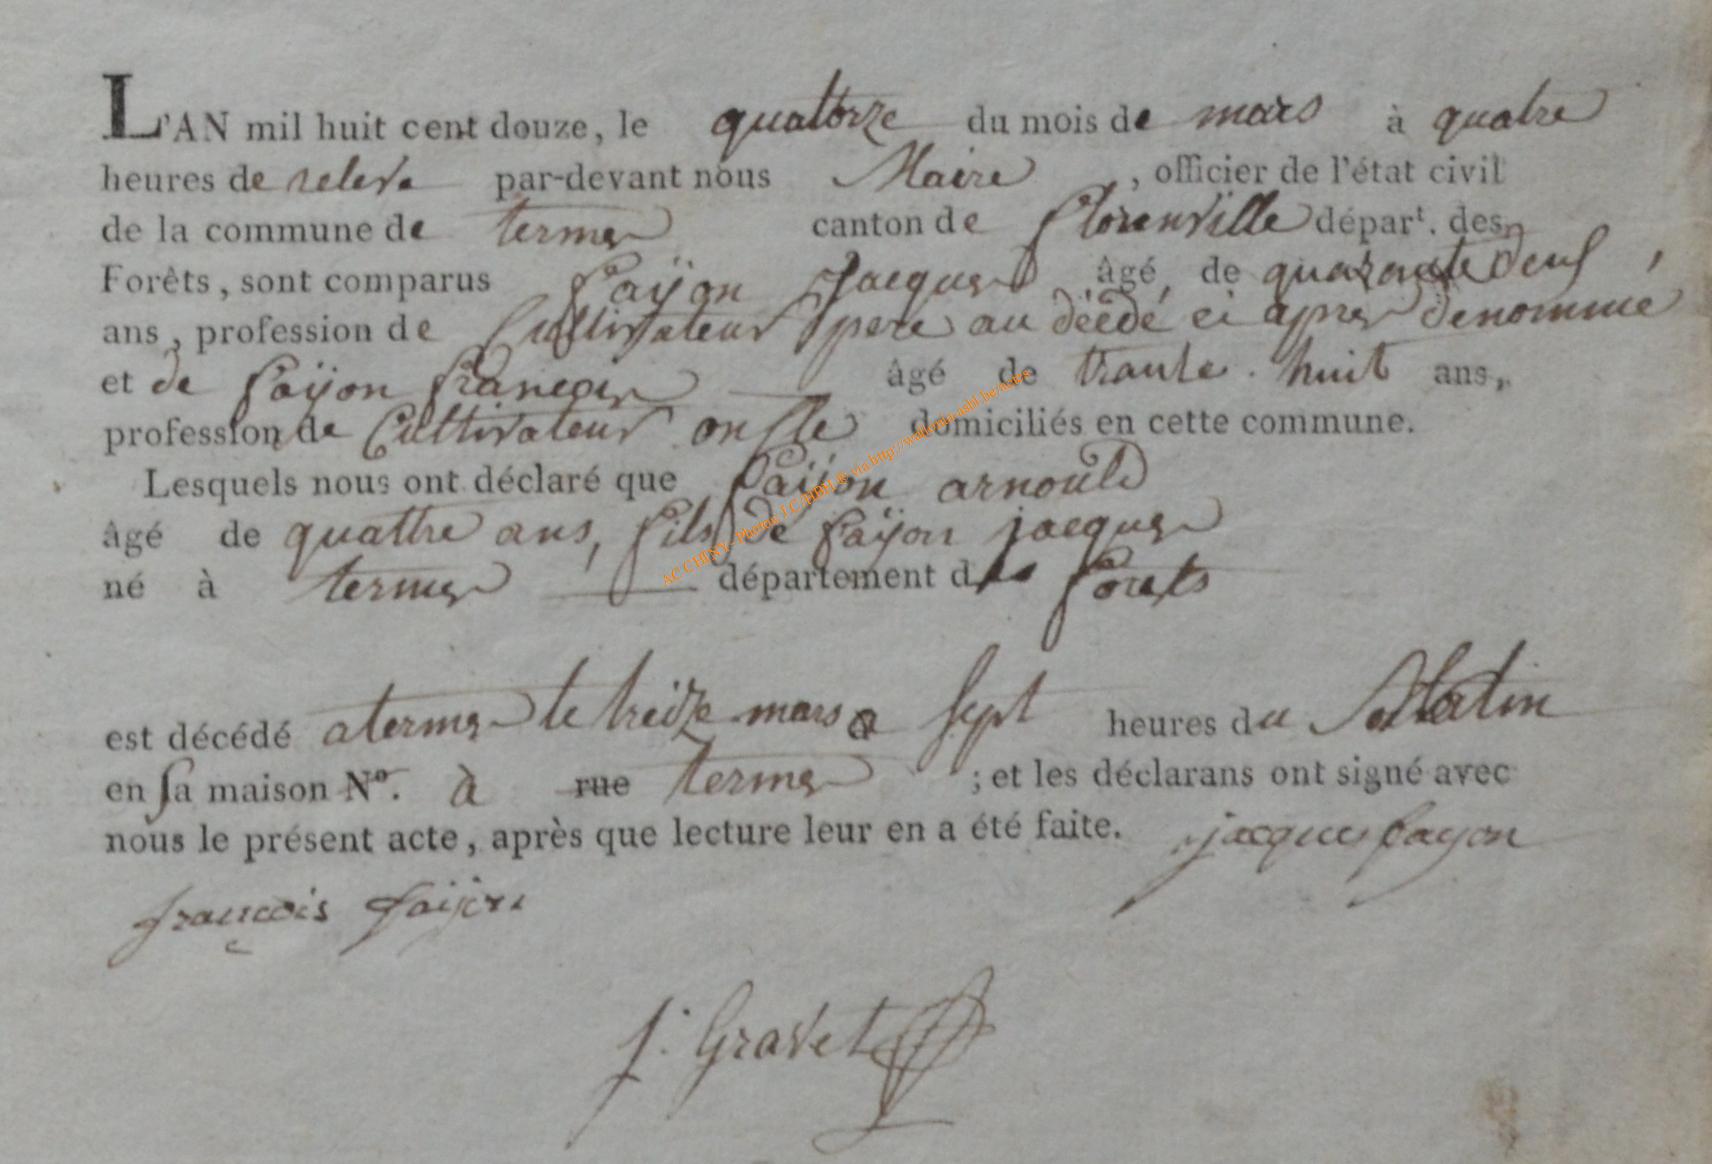 L'AN mil huit cent douze, le quattorze du mois de mars à quatre
heures de releve par-devant nous Maire , officier de l'état civil
de la commune de termes canton de florenville départ. des
Forêts, sont comparus faÿon Jacques âgé de quarante deuf
ans, profession de Cultivateur pere au déédé ci apres denommé
et de faÿon françois âgé de trante huit ans,
profession de Cultivateur onfle domiciliés en cette commune.
Lesquels nous ont déclaré que faÿon arnould
âgé de quattre ans, fils de faÿon jacques
né à termes département des forets
est décédé a termes le treize mars a sept heures du Matin
en sa maison N°. à rue termes ; et les déclarans ont signé avec
nous le présent acte, après que lecture leur en a été faite. jacques fayon
françois faijon
f. Gravet
AC CHINY - Photos J.C. via http://